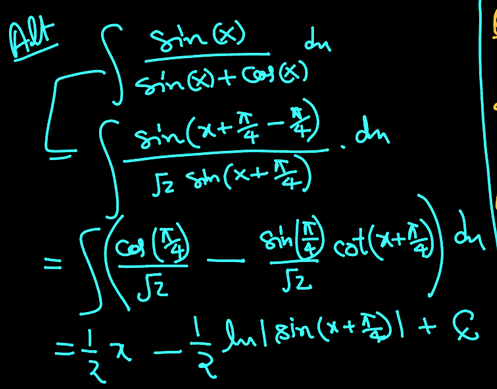 Alt ∫ sin(x) / (sin(x) + cos(x)) dx
∫ sin(x + π/4 − π/4) / (√2 sin(x + π/4)) . dx
= ∫ (cos(π/4) / √2 − sin(π/4) / √2 cot(x + π/4)) dx
= 1/2 x − 1/2 ln|sin(x + π/4)| + C